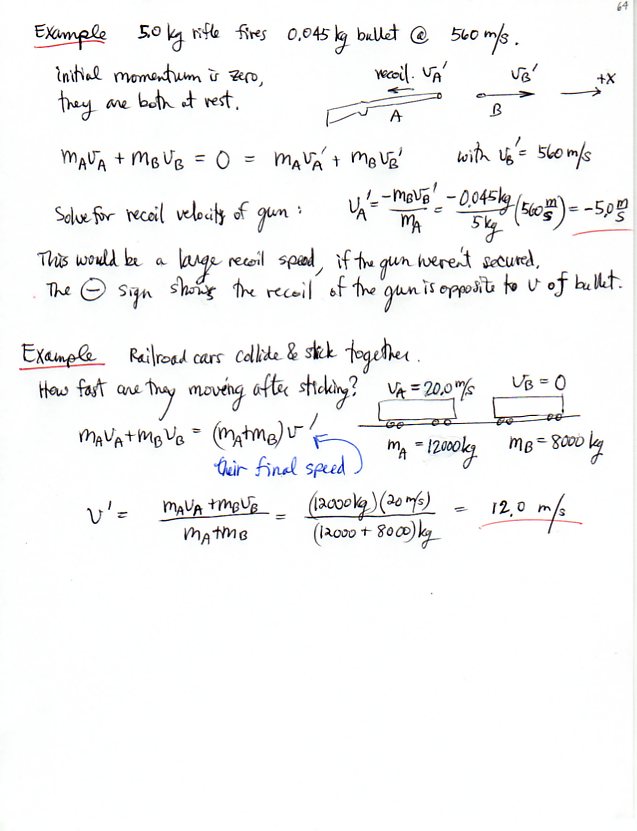 64
Example 5.0 kg rifle fires 0.045 kg bullet @ 560 m/s.
initial momentum is zero,
they are both at rest.
recoil. v_A' v_B' +x
A B
m_A v_A + m_B v_B = 0 = m_A v_A' + m_B v_B' with v_B' = 560 m/s
Solve for recoil velocity of gun : v_A' = -m_B v_B' / m_A = -0.045 kg / 5 kg (560 m/s) = -5.0 m/s
This would be a large recoil speed, if the gun weren't secured.
The ⊖ sign shows the recoil of the gun is opposite to v of bullet.
Example Railroad cars collide & stick together.
How fast are they moving after sticking? v_A = 20.0 m/s v_B = 0
m_A v_A + m_B v_B = (m_A + m_B) v' m_A = 12000 kg m_B = 8000 kg
their final speed
v' = m_A v_A + m_B v_B / m_A + m_B = (12000 kg)(20 m/s) / (12000 + 8000) kg = 12.0 m/s